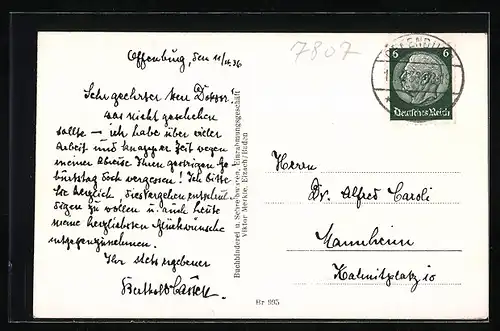 Offenburg, den 11/II. 36
7807
OFFENBURG
6 6
Deutsches Reich
Sehr geehrter Herr Doktor!
Was nicht geschehen
sollte – ich habe über vieler
Arbeit und knapper Zeit wegen
meiner Abreise Ihren gestrigen Ge
burtstag doch vergessen! Ich bitte
Sie herzlich, dies Vergehen entschul
digen zu wollen u. auch heute
meine herzlichsten Glückwünsche
entgegenzunehmen.
Ihr stets ergebener
Berthold
Buchbinderei u. Schreibwaren, Einrahmungsgeschäft
Viktor Merkle, Elzach/Baden
Herrn
Dr. Alfred Caroli
Mannheim
Kalmitplatz 10
Hr 995